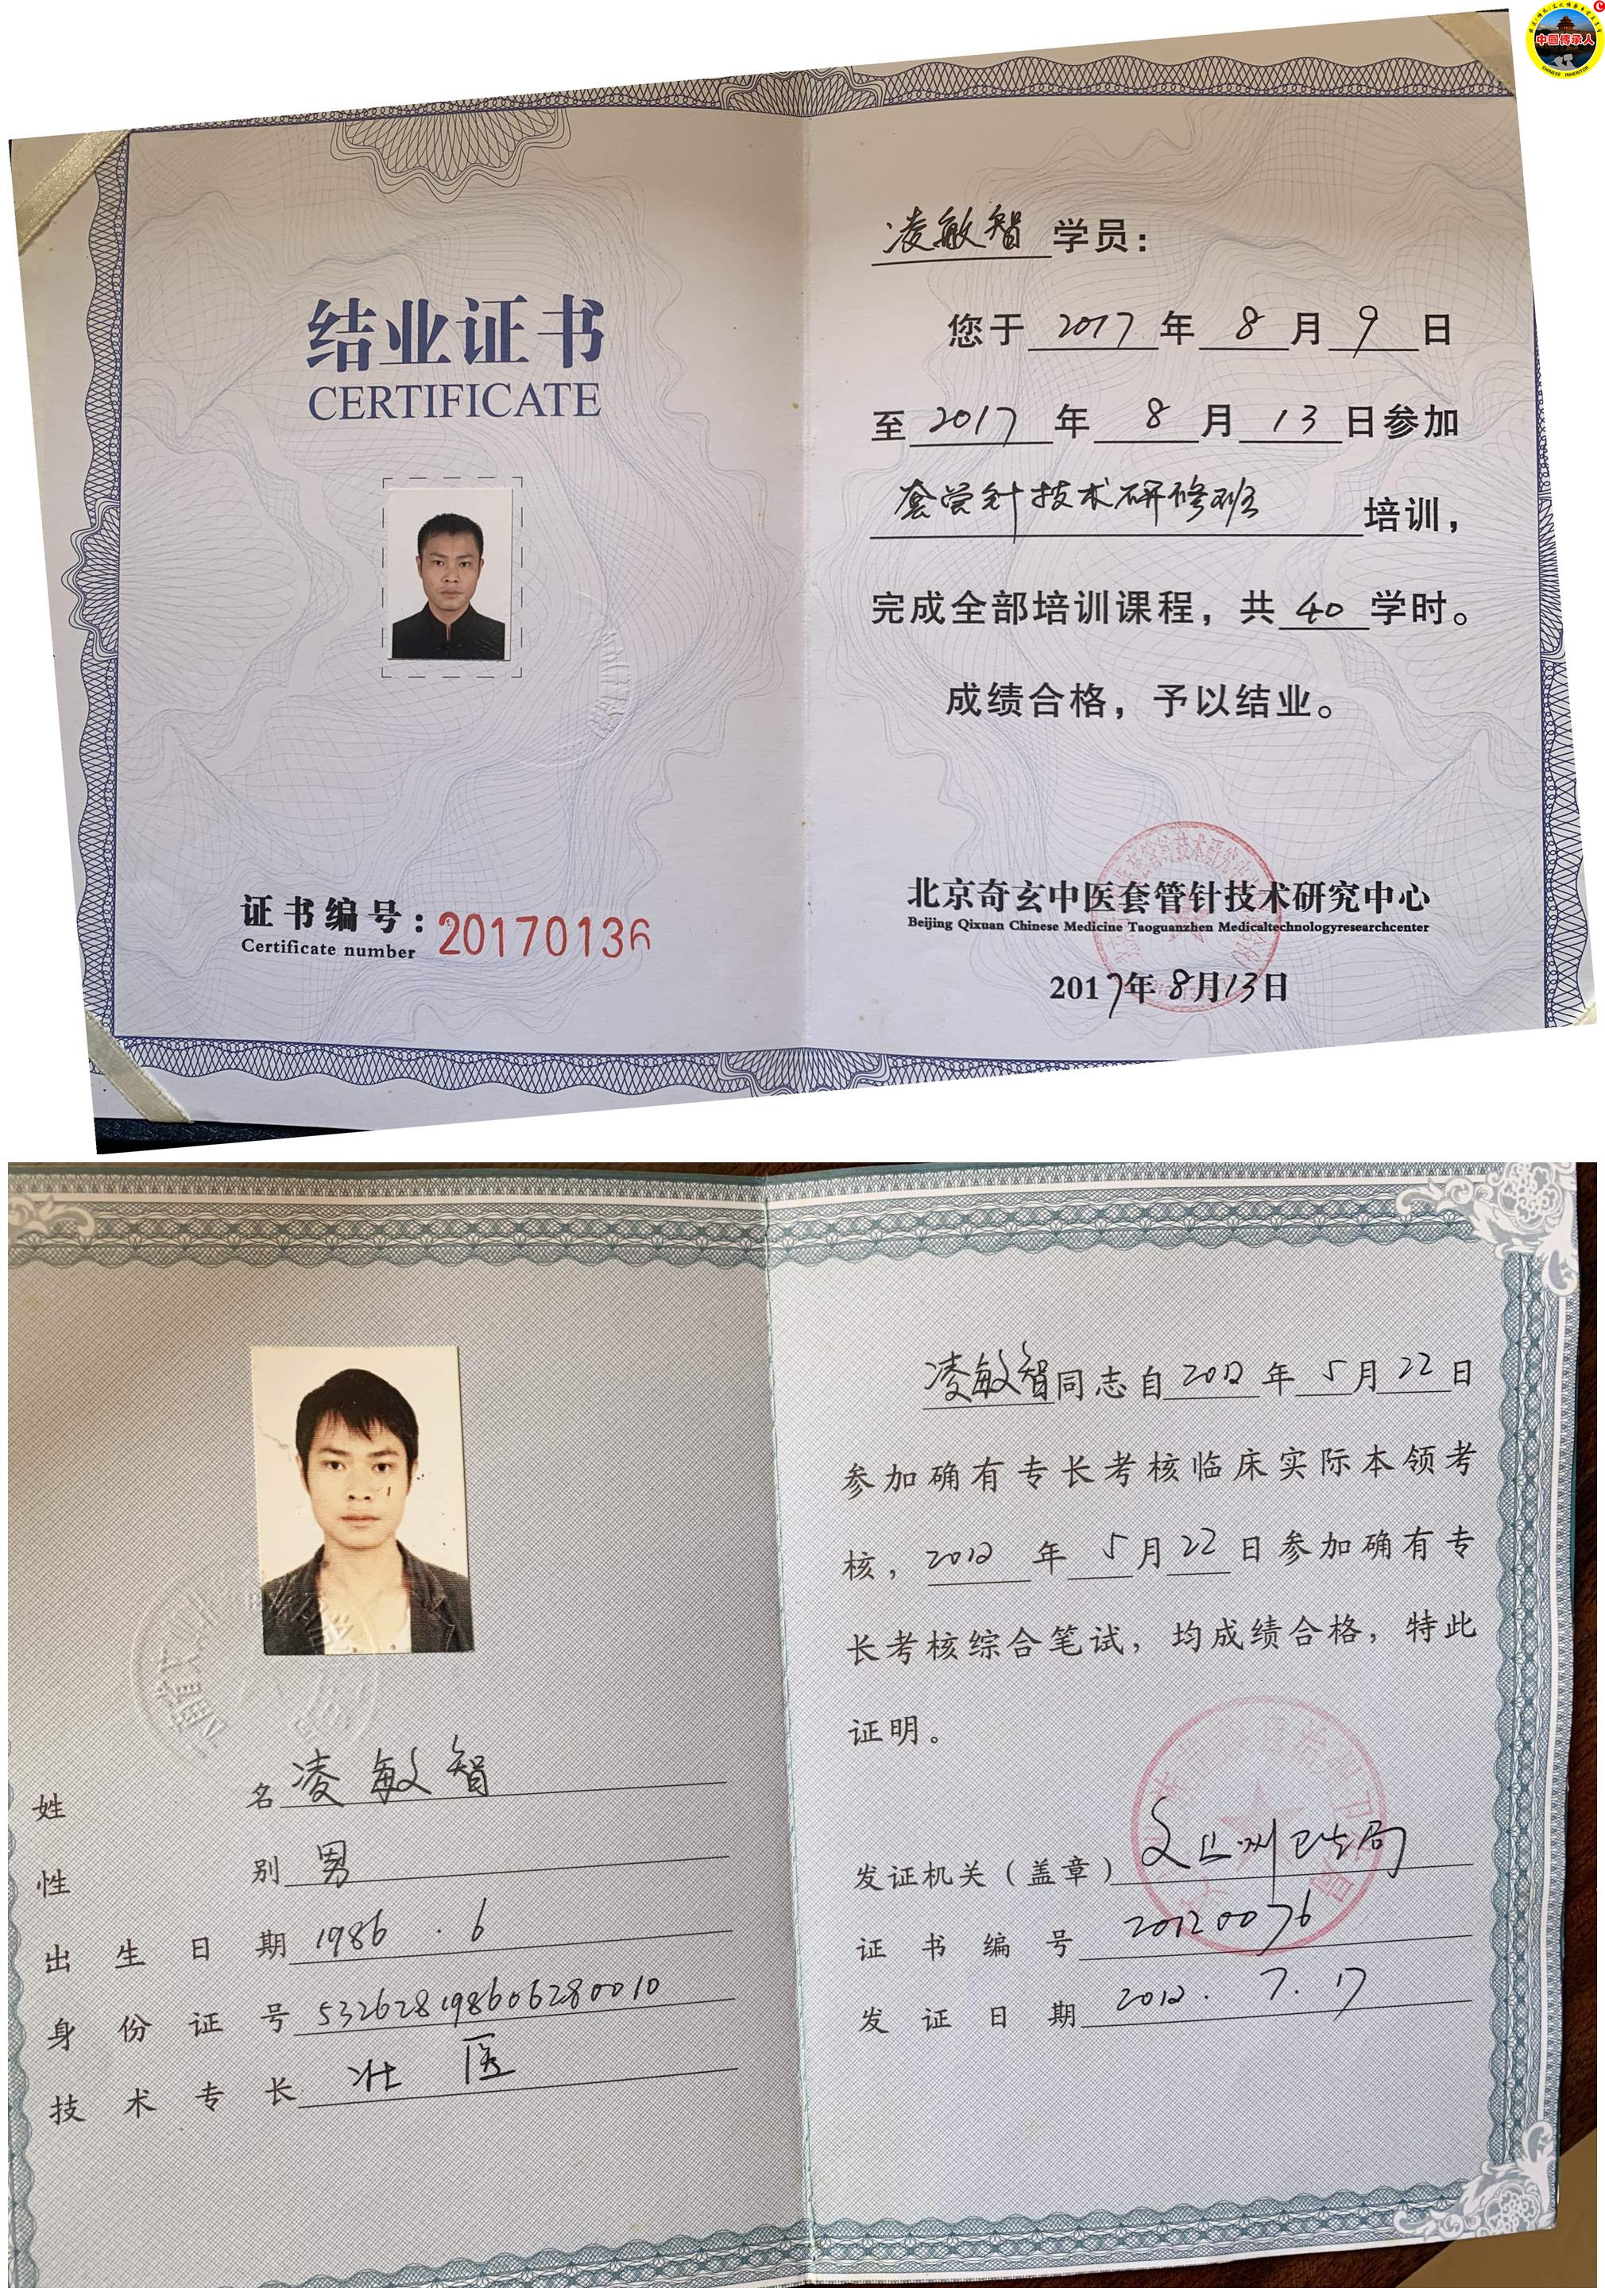 中国传承人
CHINESE INHERITOR
结业证书
CERTIFICATE
证书编号：20170136
Certificate number
凌敏智 学员：
您于 2017 年 8 月 9 日
至 2017 年 8 月 13 日参加
套管针技术研修班 培训，
完成全部培训课程，共 40 学时。
成绩合格，予以结业。
北京奇玄中医套管针技术研究中心
Beijing Qixuan Chinese Medicine Taoguanzhen Medicaltechnologyresearchcenter
2017年8月13日
姓名 凌敏智
性别 男
出生日期 1986.6
身份证号 532628198606280010
技术专长 壮医
凌敏智同志自2012年5月22日
参加确有专长考核临床实际本领考
核，2012年5月22日参加确有专
长考核综合笔试，均成绩合格，特此
证明。
发证机关（盖章）文山州卫生局
证书编号 20120076
发证日期 2012.7.17